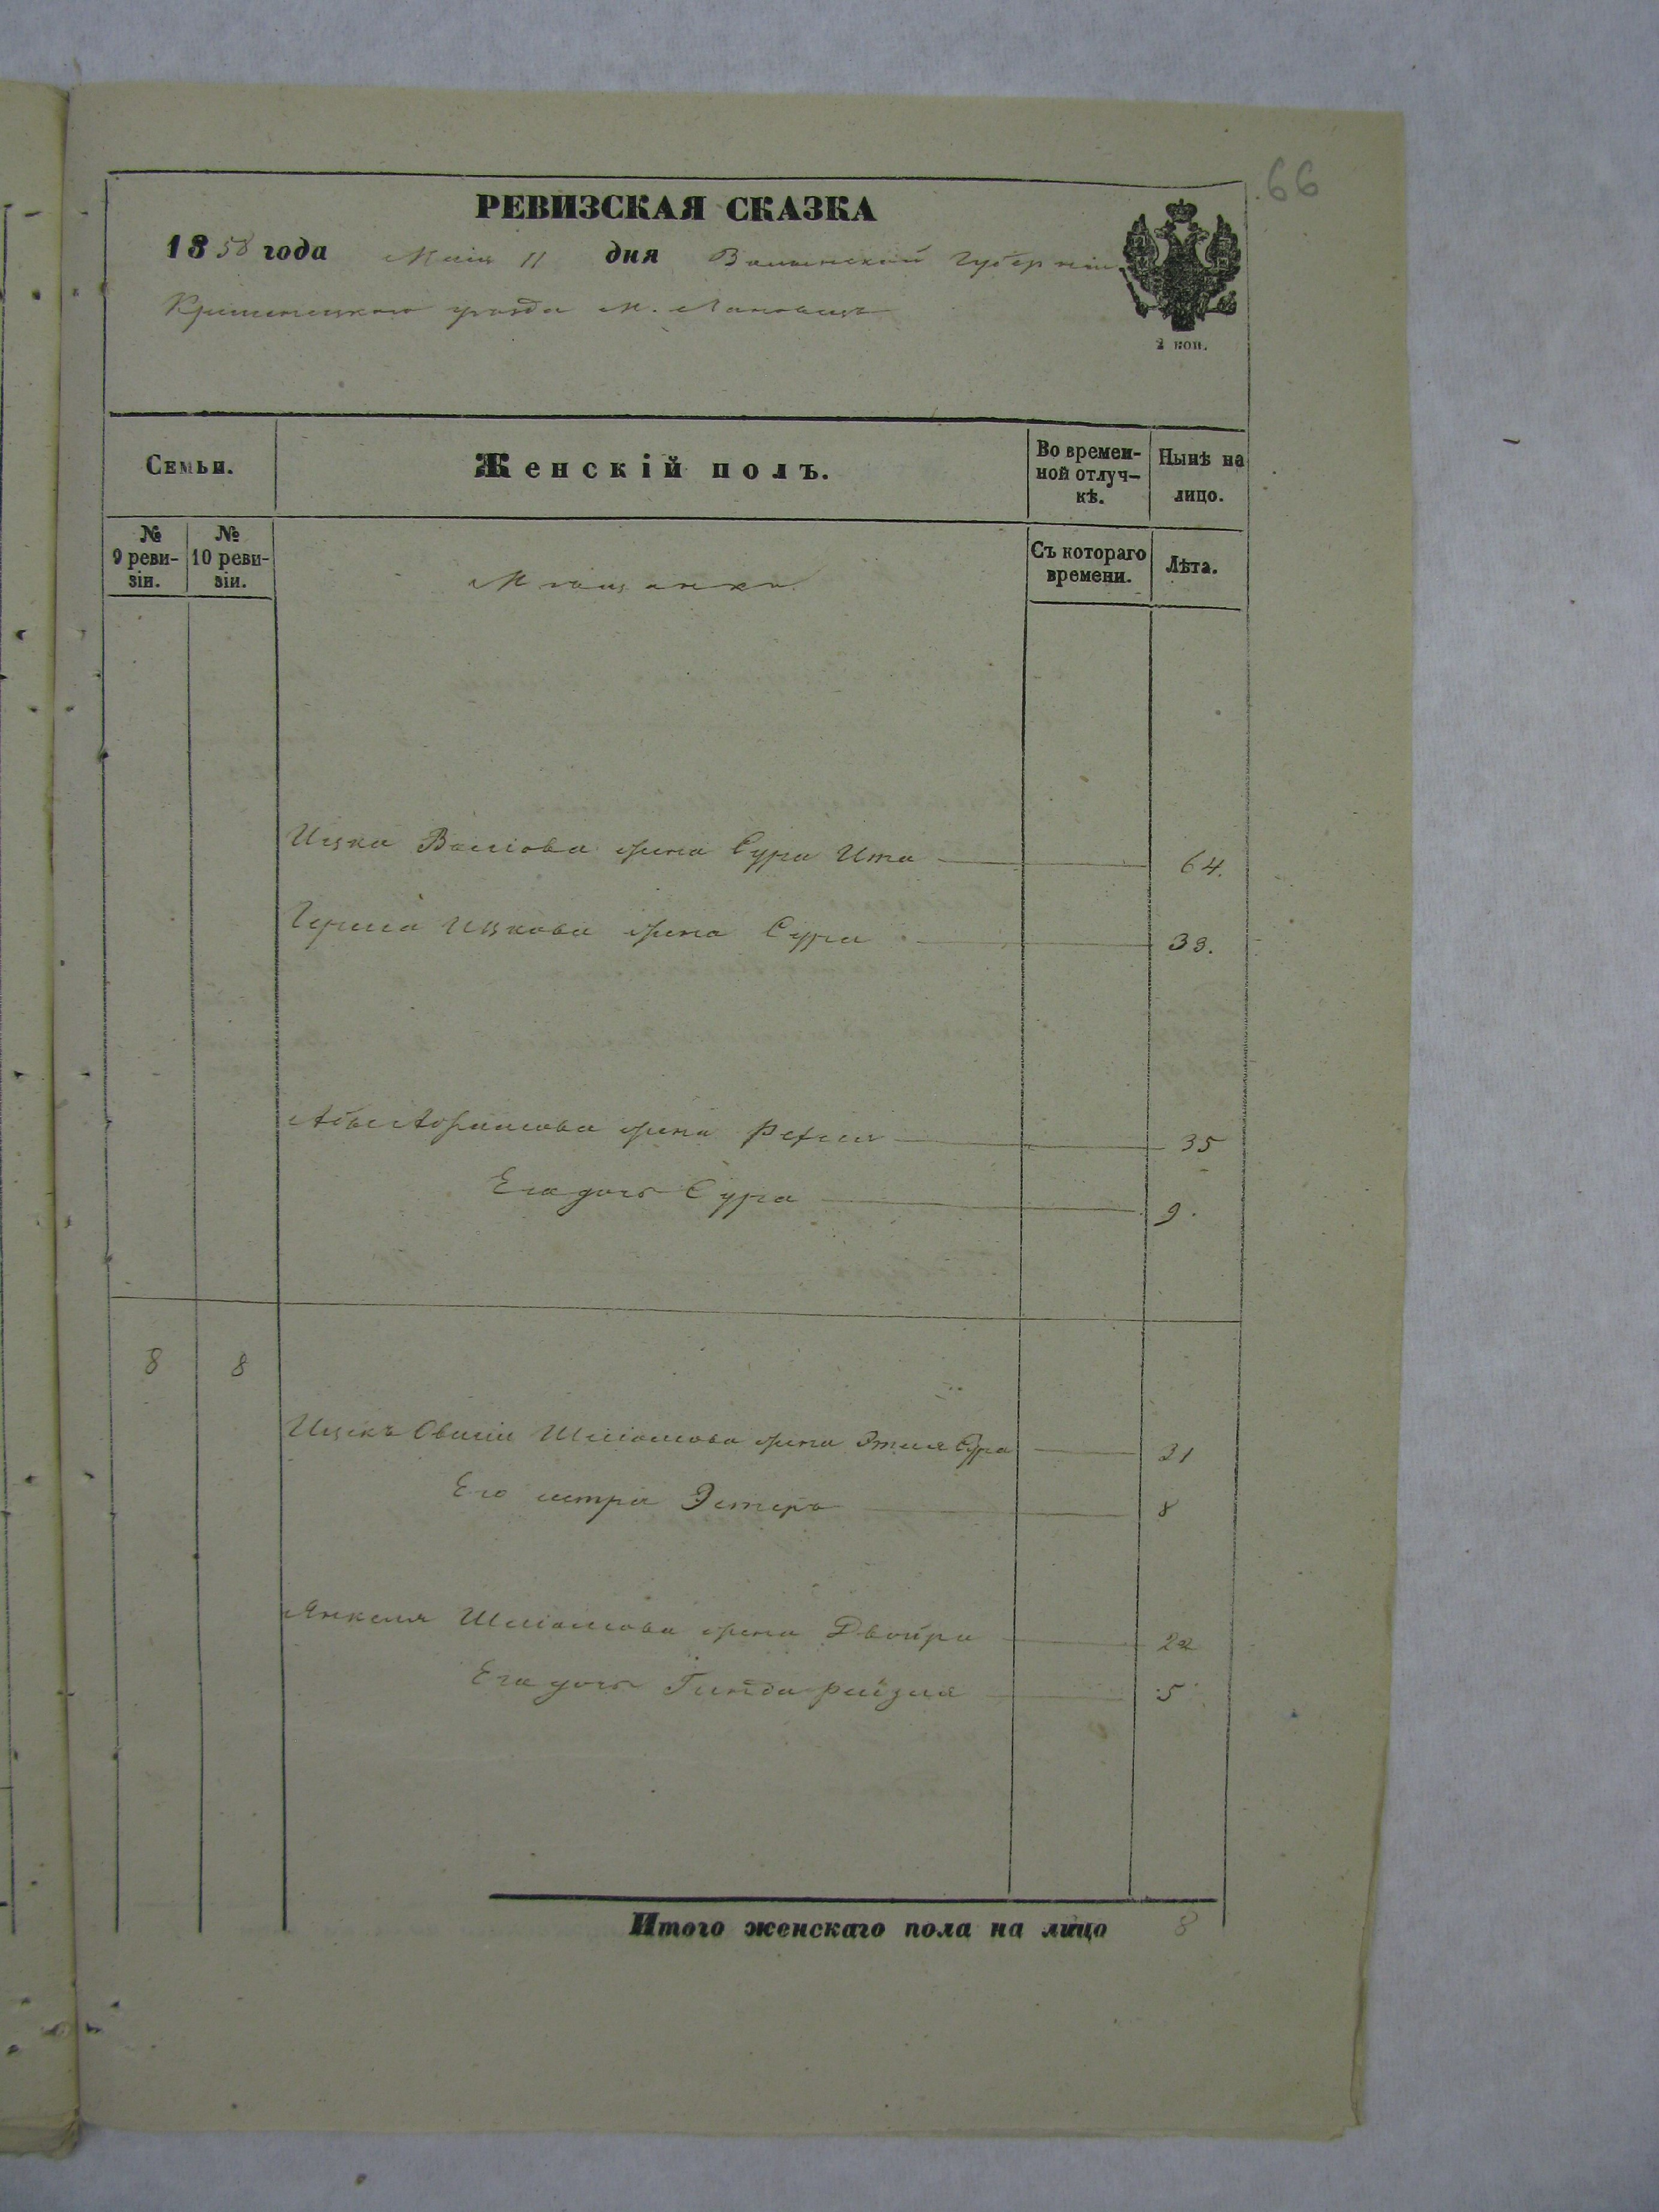 66
РЕВИЗСКАЯ СКАЗКА
1858 года Маія 11 дня Волынской Губерніи
Кременецкаго уезда м. Лановецъ
2 коп.
Семьи.
Женскій полъ.
Во времен-
ной отлуч-
кѣ.
Нынѣ на
лицо.
№
9 реви-
зіи.
№
10 реви-
зіи.
Мѣщанки
Съ котораго
времени.
Лѣта.
Ицка жена Сура Ита 64.
Ицкова жена Сура 33.
жена 35
Его дочь Сура 9.
8 8
Ицекъ Овшія Шліомова жена Этля Сура 31
Его сестра Эстеръ 8
Янкеля Шліомова жена Двойра 22
Его дочь Гинда Рейзля 5
Итого женскаго пола на лицо 8